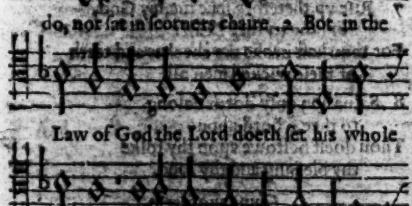 do, not sat in scorners chaire. 2 Bot in the
Law of God the Lord doeth set his whole